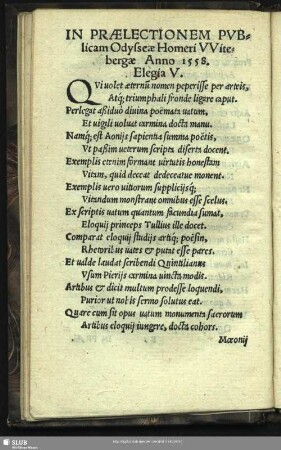 IN PRÆLECTIONEM PVB-
licam Odysseæ Homeri VVite-
bergæ Anno 1558.
Elegia V.
QVi uolet æternũ nomen peperisse per arteis,
Atq́; triumphali fronde ligare caput.
Perlegat aßiduò diuina poëmata uatum,
Et uigili uoluat carmina docta manu.
Namq́; est Aonijs sapientia summa poëtis,
Vt paßim ueterum scripta diserta docent.
Exemplis etenim formant uirtutis honestam
Vitam, quid deceat dedeceatue monent.
Exemplis uero uitiorum supplicijsq́;
Vitandum monstrant omnibus esse scelus.
Ex scriptis uatum quantum facundia sumat,
Eloquij princeps Tullius ille docet.
Comparat eloquij studijs artiq́; poësin,
Rhetoribus uates & putat esse pares.
Et ualde laudat scribendi Quintilianus
Vsum Pierijs carmina uincta modis.
Artibus & dicit multum prodesse loquendi,
Purior ut nobis sermo solutus eat.
Quare cum sit opus uatum monumenta sacrorum
Artibus eloquij iungere, docta cohors.
Mæonij
SLUB